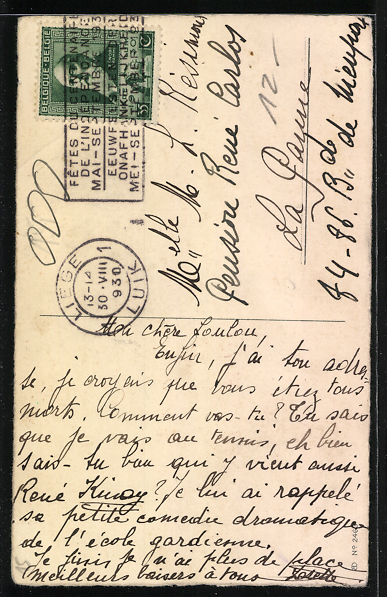 BELGIQUE-BELGIË
FÊTES DU CENTENAIRE
DE L'INDÉPENDANCE
MAI-SEPTEMBRE 1930
EEUWFEEST
ONAFHANKELIJKHEID
MEI-SEPTEMBER 1930
LIEGE 1 LUIK
13-14
30 VIII
930
12-
Melle M. L.
Pension René Carlos
La Panne
84-86. Bd de Nieuport
Mon chère Loulou,
Enfin, j'ai ton adres-
se, je croyais que vous étiez tous
morts. Comment vas-tu? Tu sais
que je vais au tennis, eh bien
sais-tu bien qui y vient aussi
René Kinay? Je lui ai rappelé
sa petite comédie dramatique
de l'école gardienne.
Je finis je n'ai plus de place
Meilleurs baisers à tous